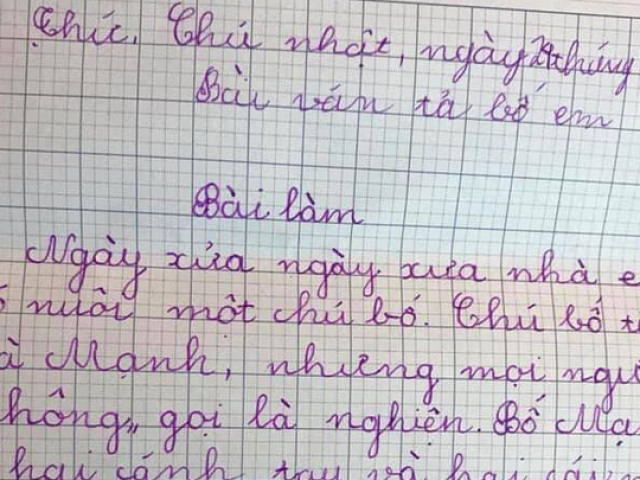 Chức, Chủ nhật, ngày 24 tháng
Bài văn tả bố em
Bài làm
Ngày xửa ngày xưa nhà e
ó nuôi một chú bố. Chú bố t
à Mạnh, nhưng mọi ngư
hông gọi là nghiện. Bố Mạ
hai cánh tay và hai cái